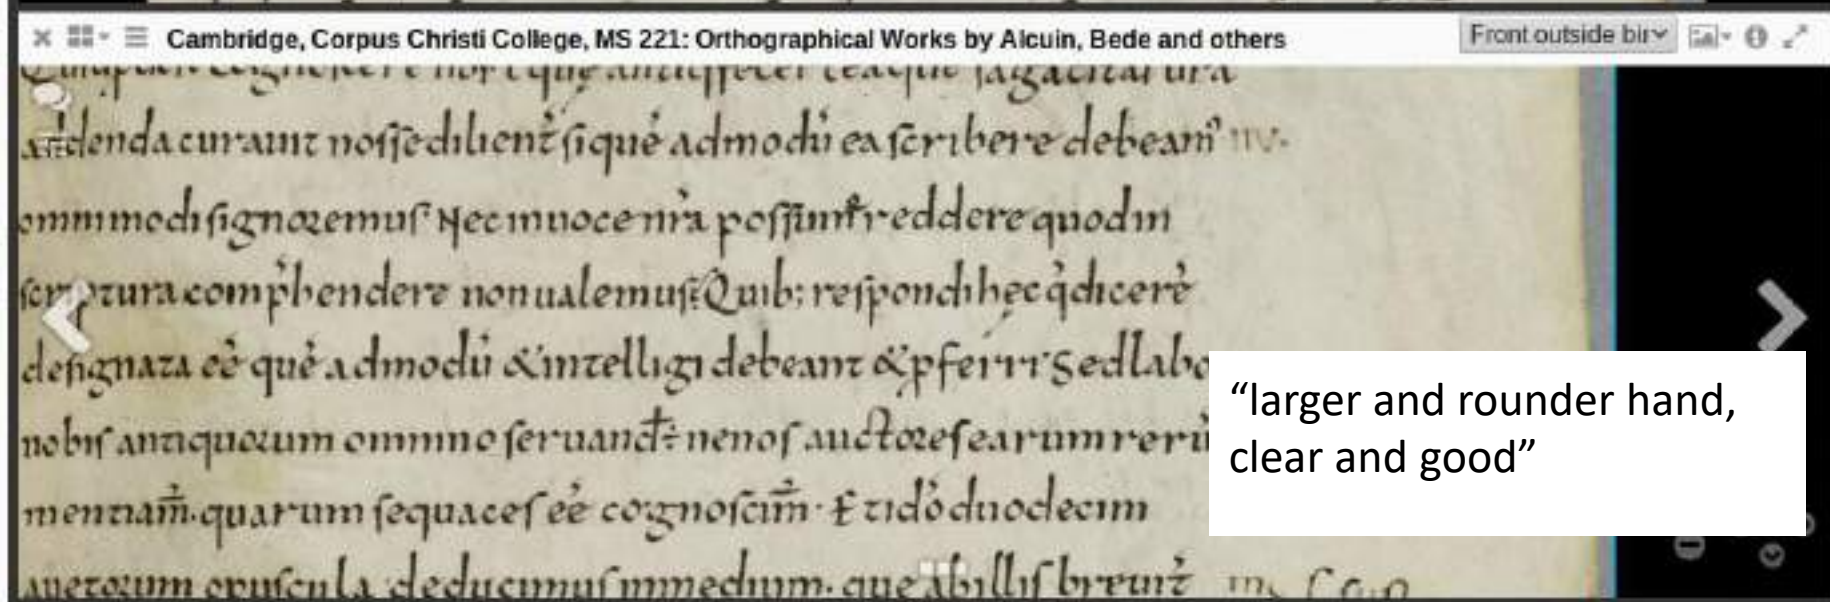 Cambridge, Corpus Christi College, MS 221: Orthographical Works by Alcuin, Bede and others
Front outside bin
addenda curauit nosse dilient̉ siquẻ admodū ea scribere debeam᾽
ommimodi signoremus Nec inuoce nr̉a possim reddere quodin
scriptura comp̉hendere non ualemus; Quib; respondi hęc q̉ dicerẻ
designata eẻ quẻ admodū & intelligi debeant & pferri Sedlabo
nobis antiquorum ommino seruand nenos auctores earum rerū
mentiam̅. quarum sequaces eẻ cognoscim̅· Et ido̓ duodecim
auctorum opuscula deducimus inmedium. que abillis breuit̉
“larger and rounder hand,
clear and good”